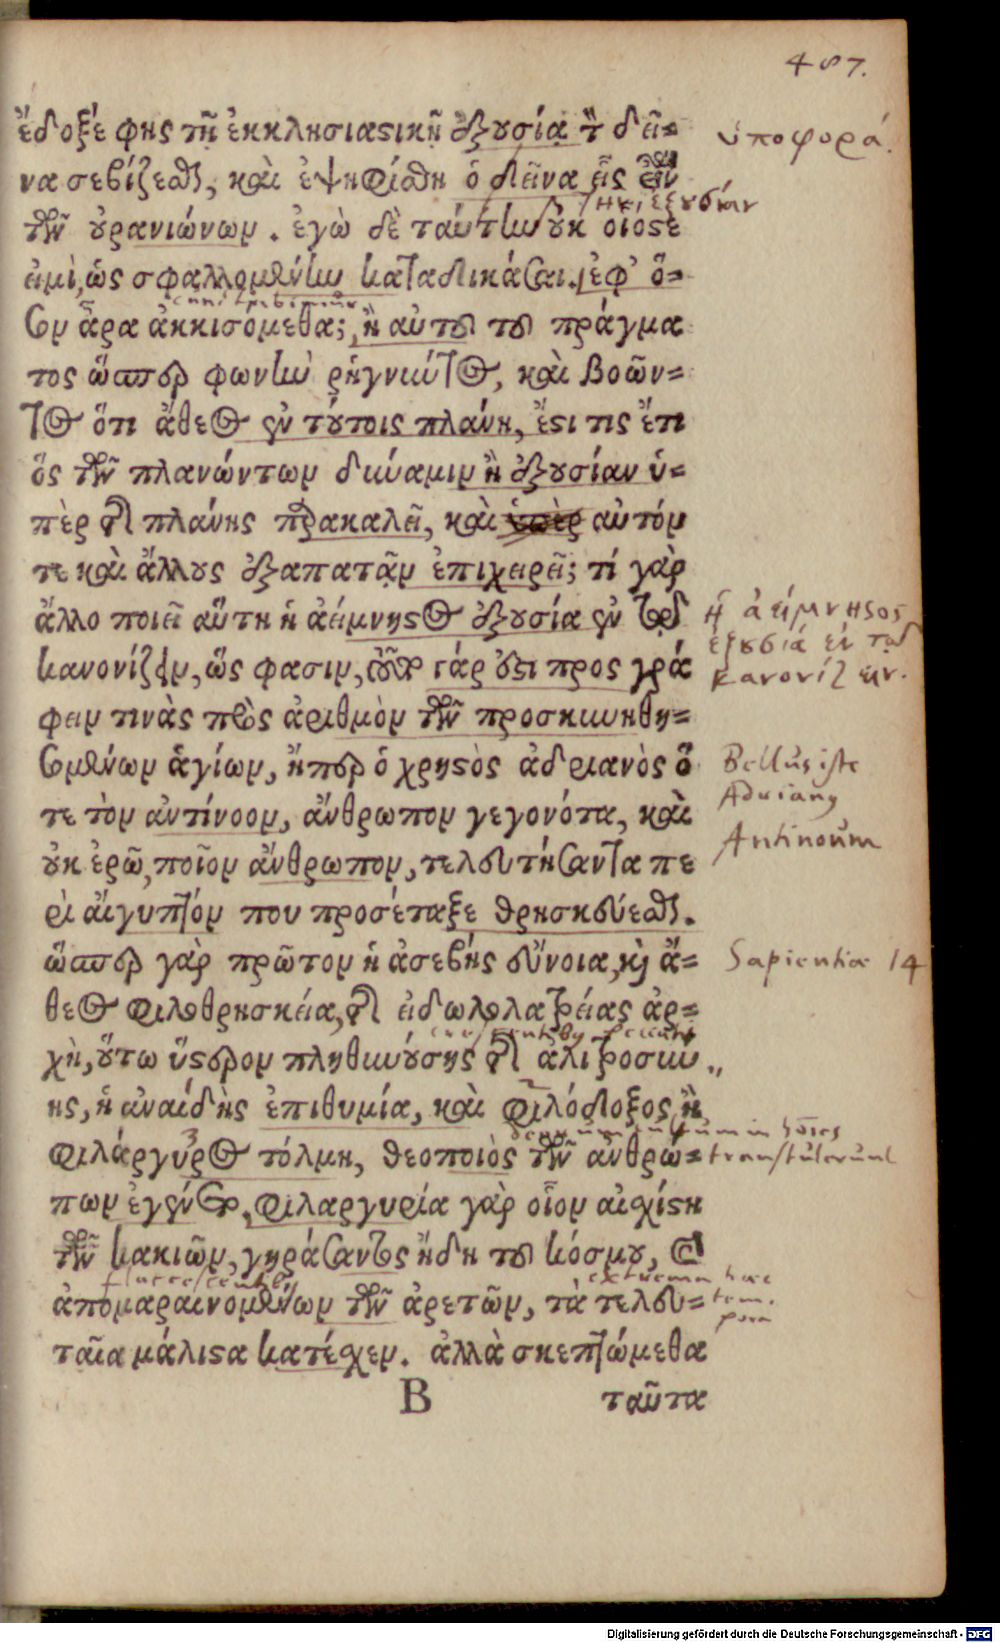 487.
ἔδοξέ φης τῇ ἐκκλησιαστικῇ ἐξουσίᾳ τὸν δεῖ=
να σεβίζεσθαι, καὶ ἐψηφίσθη ὁ δεῖνα εἷς εἶναι
τῶν οὐρανιώνων. ἐγὼ δὲ ταύτην οὐκ οἷός τε
εἰμὶ, ὡς σφαλλομένην καταδικάσαι. ἐφ' ὅ=
σον ἄρα ἀκκισόμεθα; ἢ αὐτοῦ τοῦ πράγμα
τος ὥσπερ φωνὴν ῥηγνύντος, καὶ βοῶν=
τος ὅτι ἄθεος ἐν τούτοις πλάνη, ἔστι τις ἔτι
ὃς τῶν πλανώντων δύναμιν ἢ ἐξουσίαν ὑ=
πὲρ τῆς πλάνης παρακαλεῖ, καὶ αὐτόν
τε καὶ ἄλλους ἐξαπατᾷν ἐπιχειρεῖ; τί γὰρ
ἄλλο ποιεῖ αὕτη ἡ ἀείμνηστος ἐξουσία ἐν τῷ
κανονίζειν, ὥς φασιν, τοῦτο γάρ ἐστι προσγρά
φειν τινὰς πρὸς ἀριθμὸν τῶν προσκυνηθη=
σομένων ἁγίων, ἤπερ ὁ χρηστὸς ἀδριανὸς ὅ
τε τὸν ἀντίνοον, ἄνθρωπον γεγονότα, καὶ
οὐκ ἐρῶ, ποῖον ἄνθρωπον, τελευτήσαντα πε
ρὶ αἴγυπτόν που προσέταξε θρησκεύεσθαι.
ὥσπερ γὰρ πρῶτον ἡ ἀσεβὴς εὔνοια, καὶ ἄ=
θεος φιλοθρησκεία, τῆς εἰδωλολατρείας ἀρ=
χὴ, οὕτω ὕστερον πληθυνούσης τῆς ἀλιτροσύν
ης, ἡ ἀναιδὴς ἐπιθυμία, καὶ φιλόδοξος ἢ
φιλάργυρος τόλμη, θεοποιὸς τῶν ἀνθρώ=
πων ἐγένετο, φιλαργυρία γὰρ οἷον αἰσχίστη
τῶν κακιῶν, γηράσαντος ἤδη τοῦ κόσμου, καὶ
ἀπομαραινομένων τῶν ἀρετῶν, τὰ τελευ=
ταῖα μάλιστα κατέσχεν. ἀλλὰ σκεπτώμεθα
B ταῦτα
ὑποφορά.
ἐξουσίαν
ἡ ἀείμνηστος
ἐξουσία ἐν τῷ
κανονίζειν.
Bellus iste
Adrianus
Antinoum
Sapientiae 14
transtulerunt
extrema haec
tem.
pora
Digitalisierung gefördert durch die Deutsche Forschungsgemeinschaft - DFG